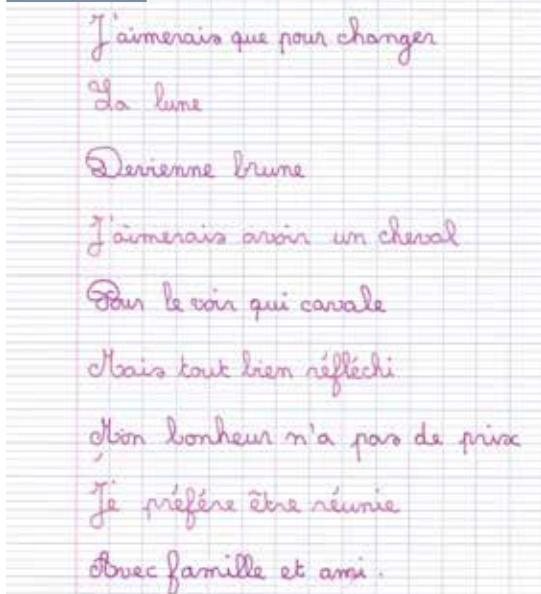 J'aimerais que pour changer
La lune
Devienne brune
J'aimerais avoir un cheval
Pour le voir qui cavale
Mais tout bien réfléchi
Mon bonheur n'a pas de prix
Je préfére être réunie
Avec famille et ami.